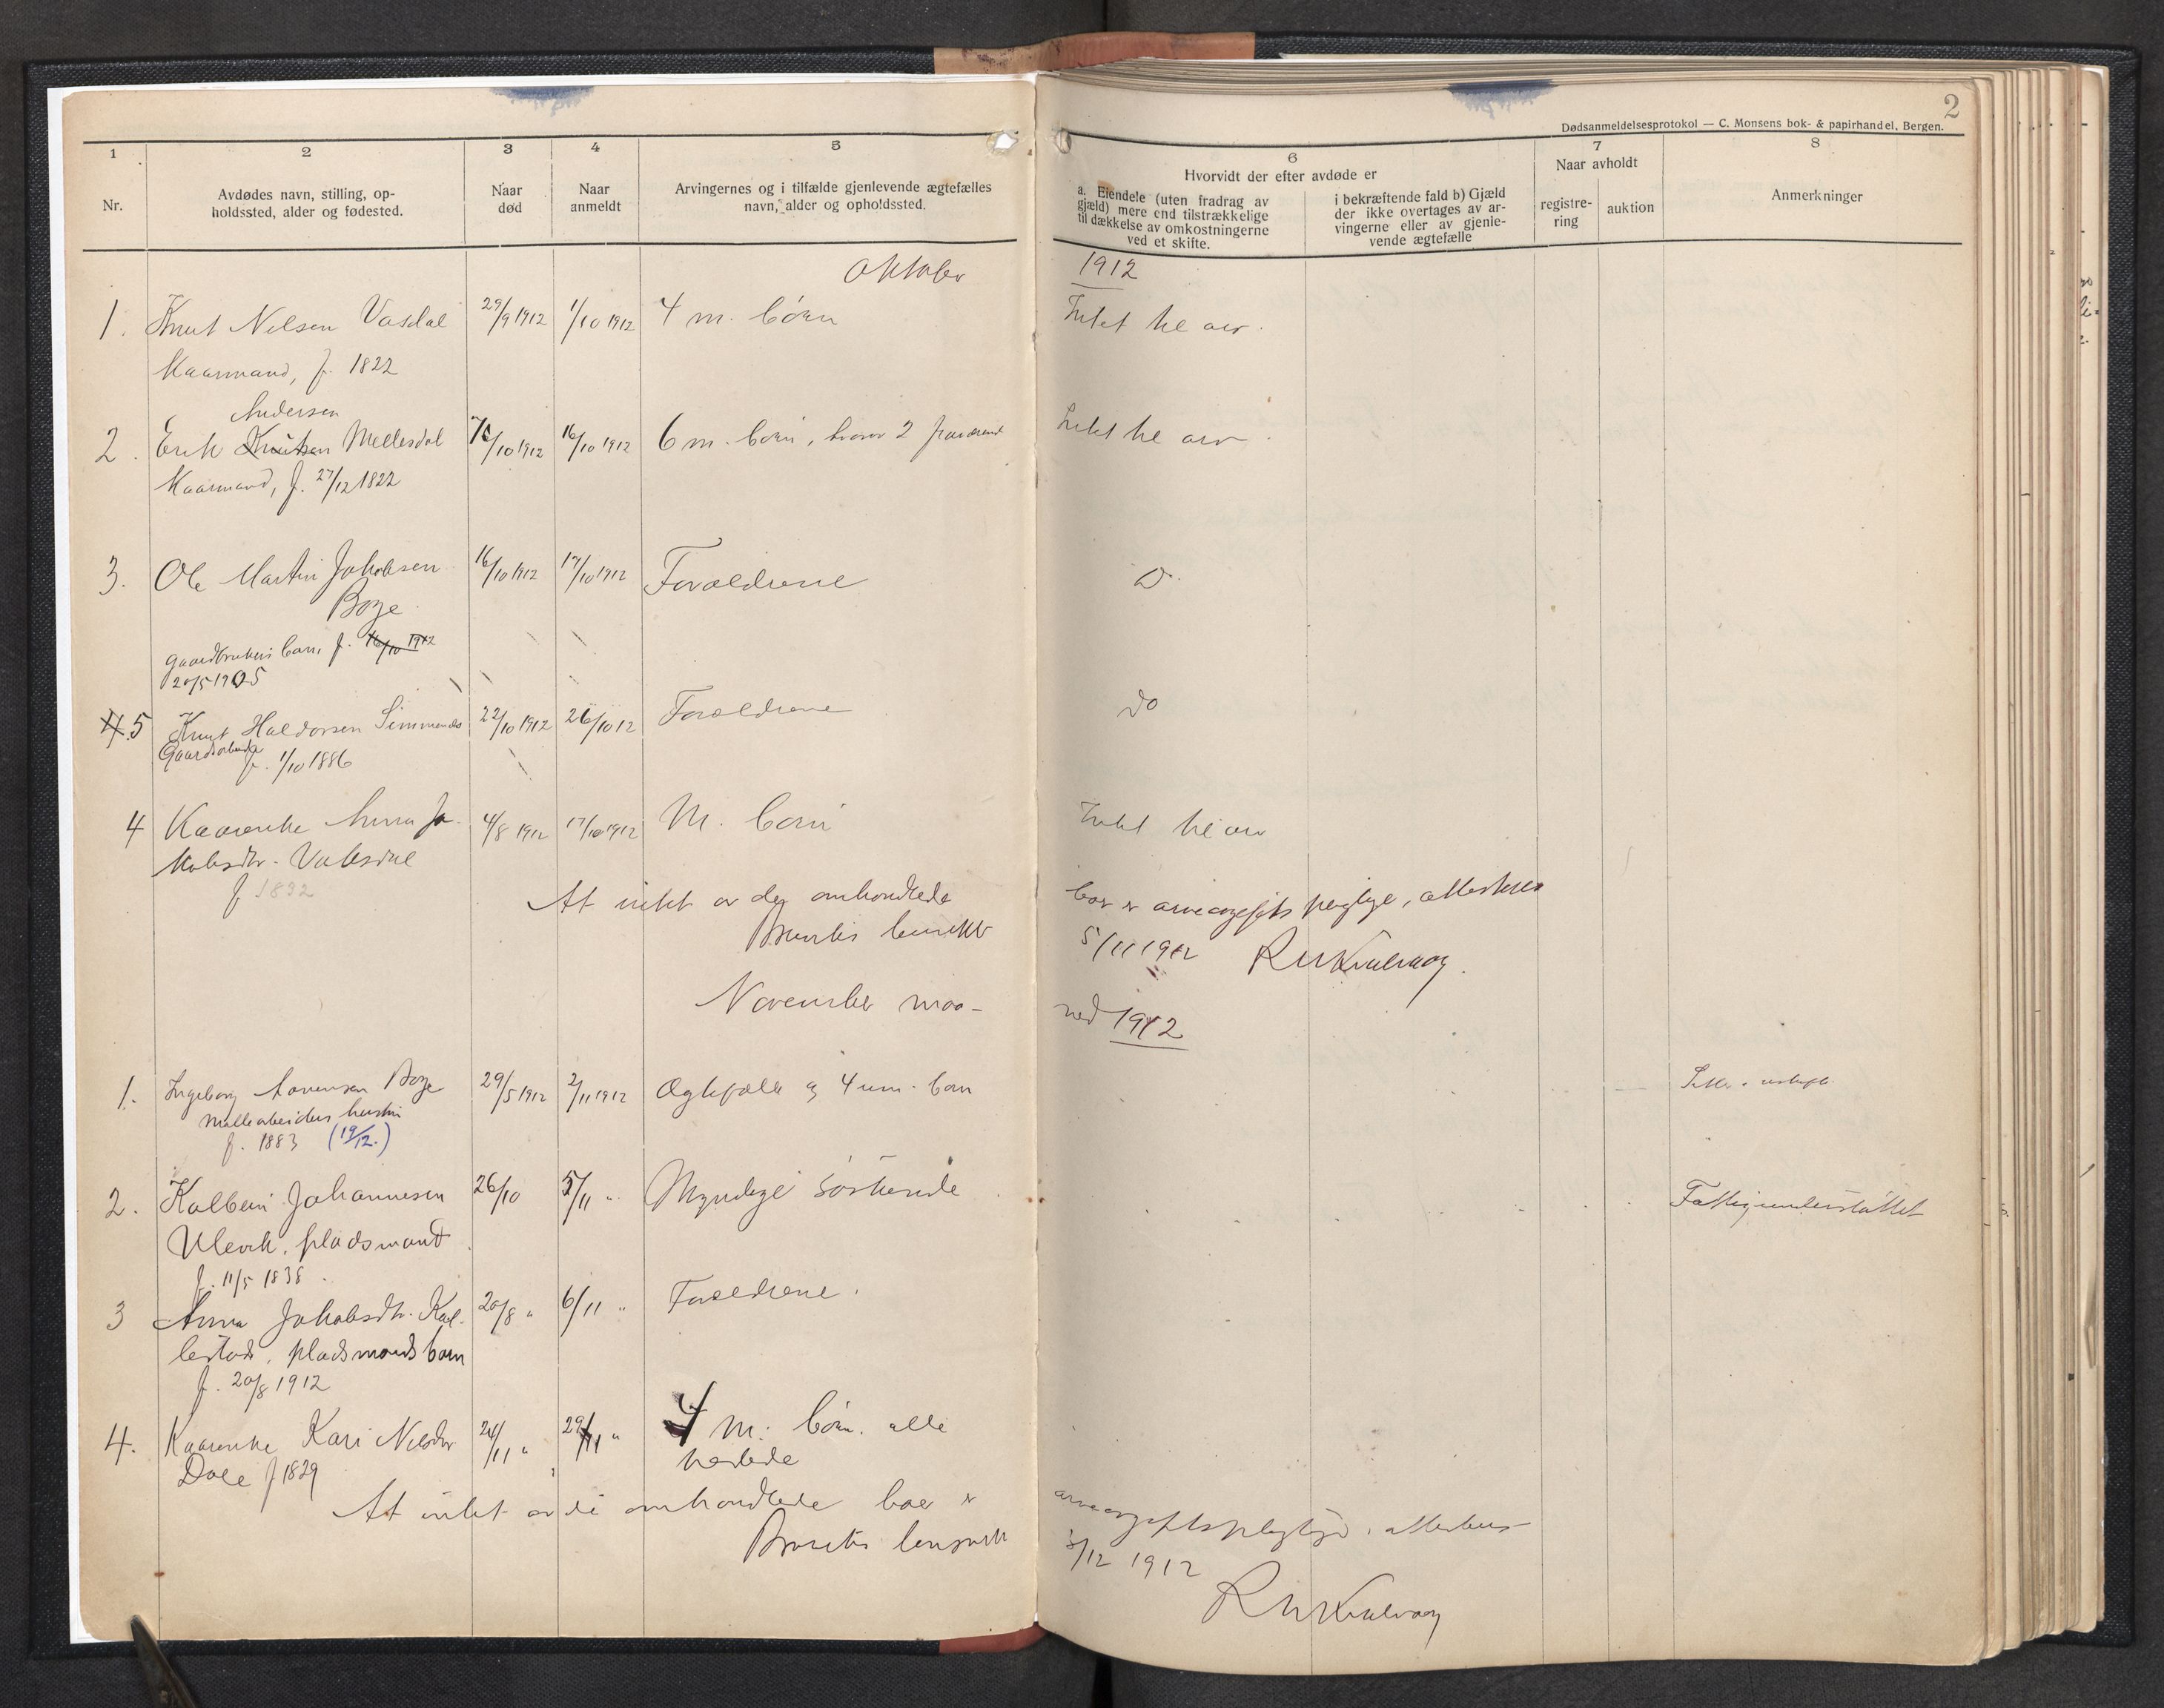 2
Dødsanmeldelsesprotokol — C. Monsens bok- & papirhandel, Bergen.
1 2 3 4 5 6 7 8
Nr.
Avdødes navn, stilling, op-
holdssted, alder og fødested.
Naar
død
Naar
anmeldt
Arvingernes og i tilfælde gjenlevende ægtefælles
navn, alder og opholdssted.
Hvorvidt der efter avdøde er
a. Eiendele (uten fradrag av
gjæld) mere end tilstrækkelige
til dækkelse av omkostningerne
ved et skifte.
i bekræftende fald b) Gjæld
der ikke overtages av ar-
vingerne eller av gjenle-
vende ægtefælle
Naar avholdt
registre-
ring
auktion
Anmerkninger
Oktober 1912
1. Knut Nilsen Vasdal 29/9 1912 1/10 1912 4 m. børn Intet til arv.
Kaarmand, f. 1822
Andersen
2. Erik Knutsen Mellesdal /10 1912 16/10 1912 6 m. børn, hvorav 2 fraværende Intet til arv.
Kaarmand, f. 27/12 1822
3. Ole Martin Jakobsen 16/10 1912 17/10 1912 Forældrene D.
Boge
gaardbrukers barn, f. 16/10 1912
20/5 1905
4. 5 Knut Haldorsen Simmenes 22/10 1912 26/10 12 Forældrene do
Gaardsarbeider
f. 1/10 1886
4 Kaarenke Anna Ja- 4/8 1912 17/10 1912 M. børn Intet til arv
kobsdtr. Vaksdal
f 1832
At intet av de omhandlede boer er arveavgiftspligtige, attesteres
Bruviks lensmk 5/11 1912 R Kvalvaag.
November maa- ned 1912
1. Ingeborg Boge 29/5 1912 2/11 1912 Ægtefælle og 4 um. børn
møllearbeiders hustru
f. 1883 (19/12.)
2. Kolbein Johannesen 26/10 5/11 " Myndige søskende Fattigunderstøttet
Ulevik, pladsmand
f. 11/5 1838.
3 Anna Jakobsdtr. Kal- 20/8 " 6/11 " Forældrene.
lestad, pladsmands barn
f. 20/8 1912
4. Kaarenke Kari Nilsdtr 24/11 " 29/11 " 4 m. børn. alle
Dale f 1829 herstede
At intet av de omhandlede boer er arveavgiftspligtige, attesteres
Bruviks lensmk 3/12 1912
R Kvalvaag